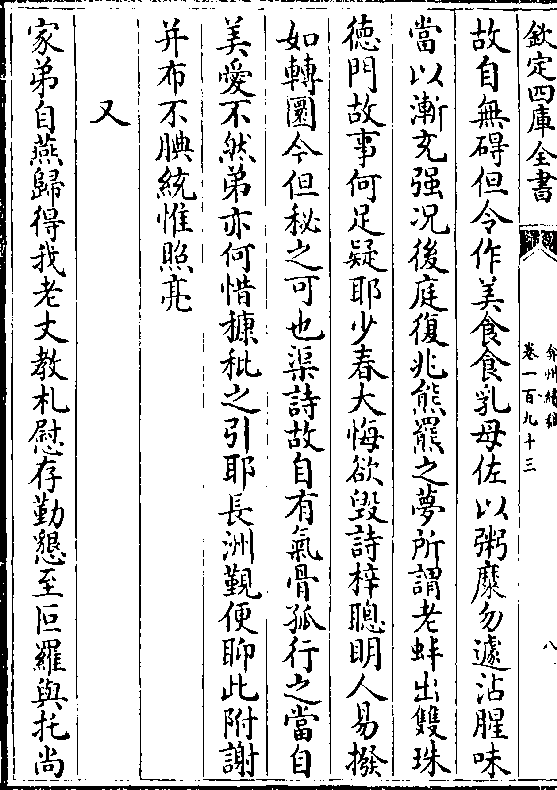 欽定四庫全書
弇州續稿
卷一百九十三
八
故自無碍但令作美食食乳母佐以粥糜勿遽沾腥味
當以漸充强况後庭復兆熊羆之夢所謂老蚌出雙珠
徳門故事何足疑耶少春大悔欲毁詩梓聰明人易撥
如轉圜今但秘之可也渠詩故自有氣骨孤行之當自
美愛不然弟亦何惜穅秕之引耶長洲覲便聊此附謝
并布不腆統惟照亮
又
家弟自燕歸得我老丈教札慰存勤懇至叵羅與托尚